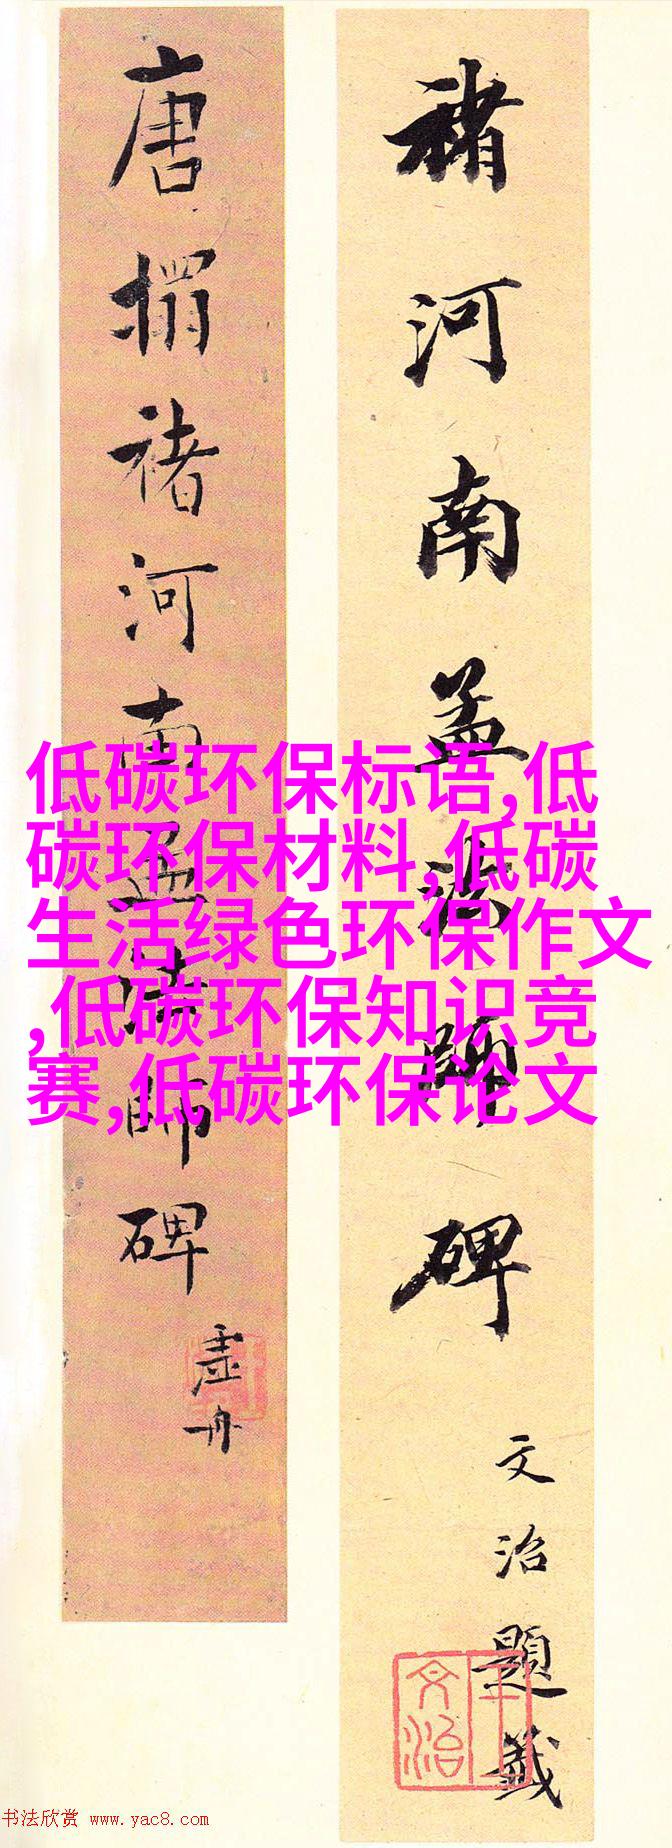 褚河南孟法師碑
文治題籤
王文治
唐搨褚河南孟法師碑
虚舟
低碳环保标语,低
碳环保材料,低碳
生活绿色环保作文
,低碳环保知识竞
赛,低碳环保论文
书法欣赏 www.yac8.com